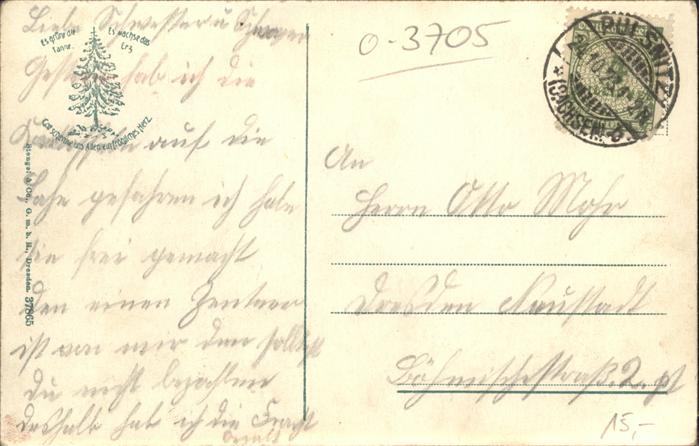 Liebe Schwester u Schwager
Gestern hab ich die
Kartoffeln auf die
Bahn gefahren ich habe
sie frei gemacht
den einen Zentner
ist von mir den sollst
du nicht bezahlen
deshalb hat ich die Fracht
bezalt
Es grüne die Tanne,
Es wachse das Erz
Gott schenke uns Allen ein fröhliches Herz.
Stengel & Co., G. m. b. H., Dresden. 37865
0-3705
PULSNITZ
(SACHSEN)
An
Herrn Otto Mohr
Dresden Neustadt
Böhmischestraß. 2. pt
15,-